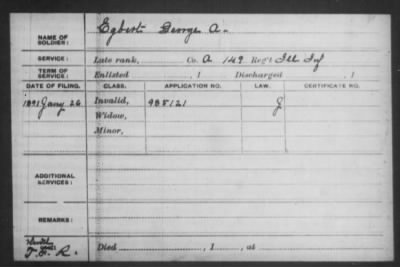 NAME OF SOLDIER: Egbert George A.
SERVICE: Late rank, Co. A 149 Reg't Ill Inf
TERM OF SERVICE: Enlisted , 1 Discharged , 1
DATE OF FILING. CLASS. APPLICATION NO. LAW. CERTIFICATE NO.
1891 Jany 26 Invalid, 985121 J
Widow,
Minor,
ADDITIONAL SERVICES:
REMARKS:
Died , 1 , at